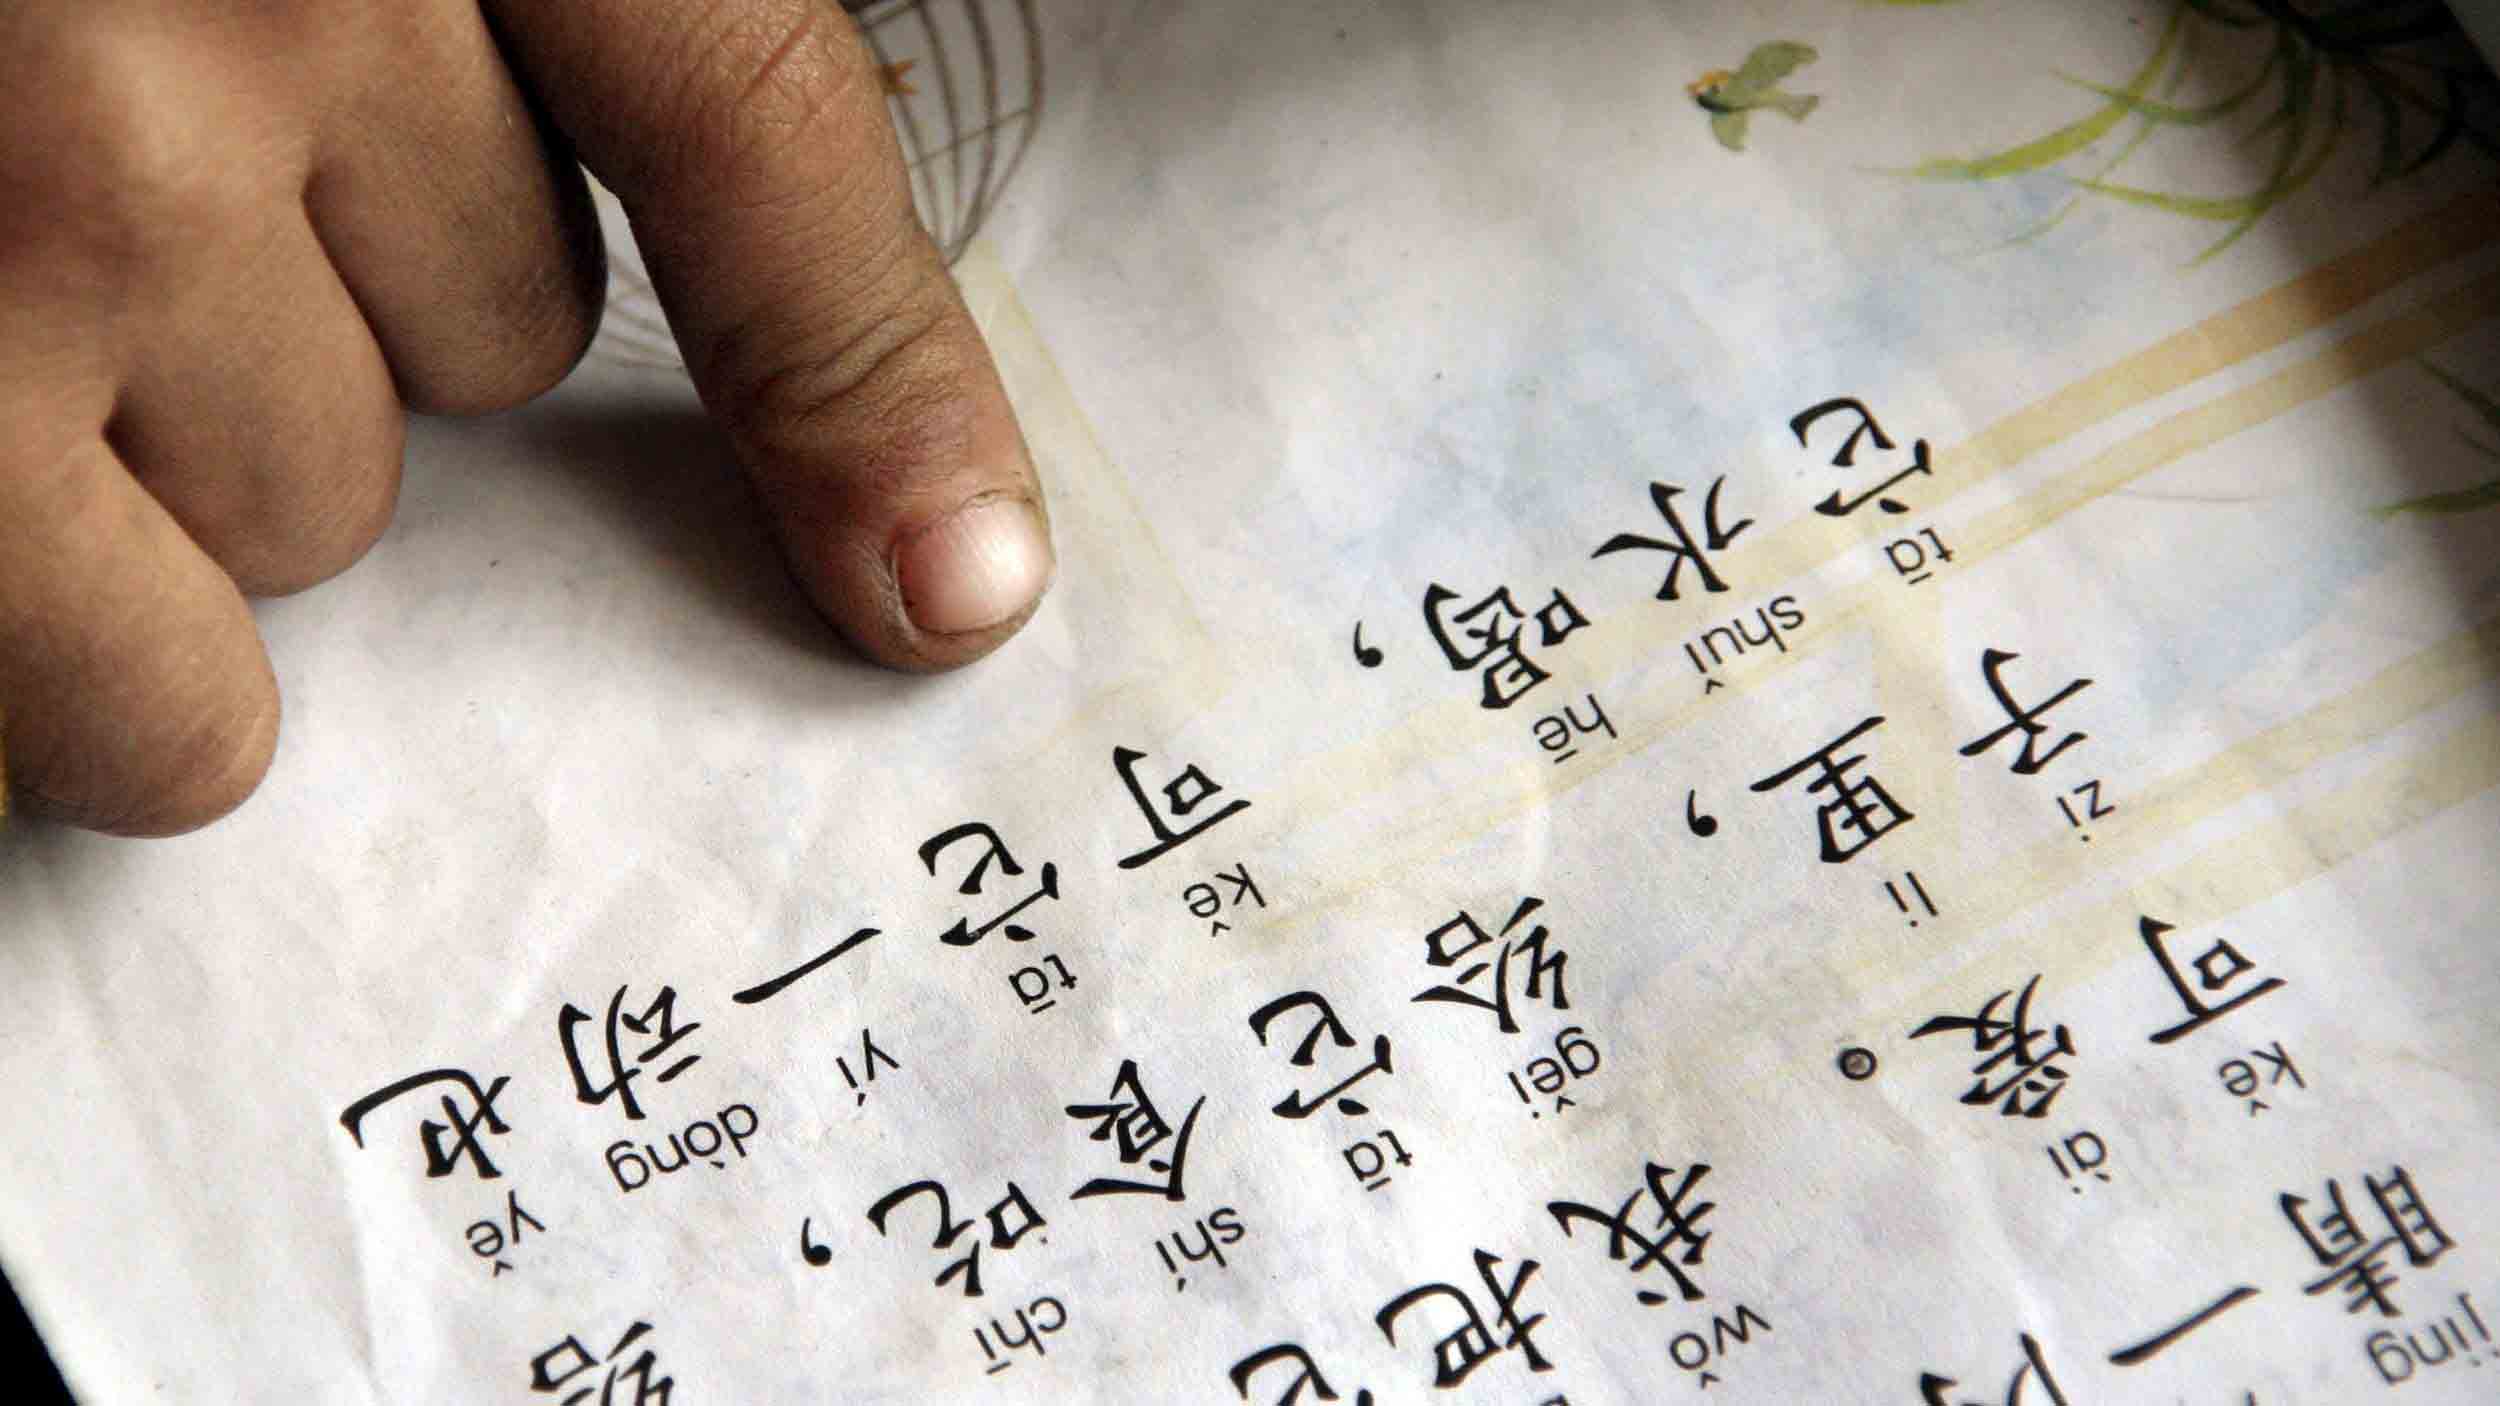 jing
睛 一
kě ài wǒ
可爱。我把它
zi li gěi tā shí chī
子里，给它食吃，给
tā shuǐ hē kě tā yí dòng yě
它水喝，可它一动也